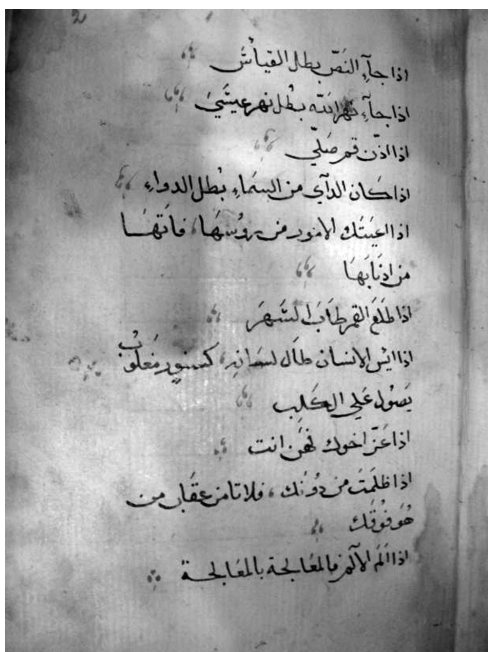 اذا جآء النصّ بطل القياسُ
اذا جآء نهر الله بطل نهر عيسَي
اذا اذّن قم صَلّي
اذا كَان الدآي من السمَاءِ بُطل الدواءِ
اذا اعيَتك الامور من روُسهَا، فاتهَا
من اذنابهَا
اذا طلَعَ القمر طابَ السَّهرَ
اذا ايس الانسان طال لسَانه، كسنورٍ مَغلوُب
يَصُول عَلي الكَلبِ
اذا عَزّ اخوك فهُن انت
اذا ظلَمتَ من دُونك، فلا تامن عقاب من
هُوَ فوُقك
اذا المَ الالم فالمعَالجة بالمعَالجة